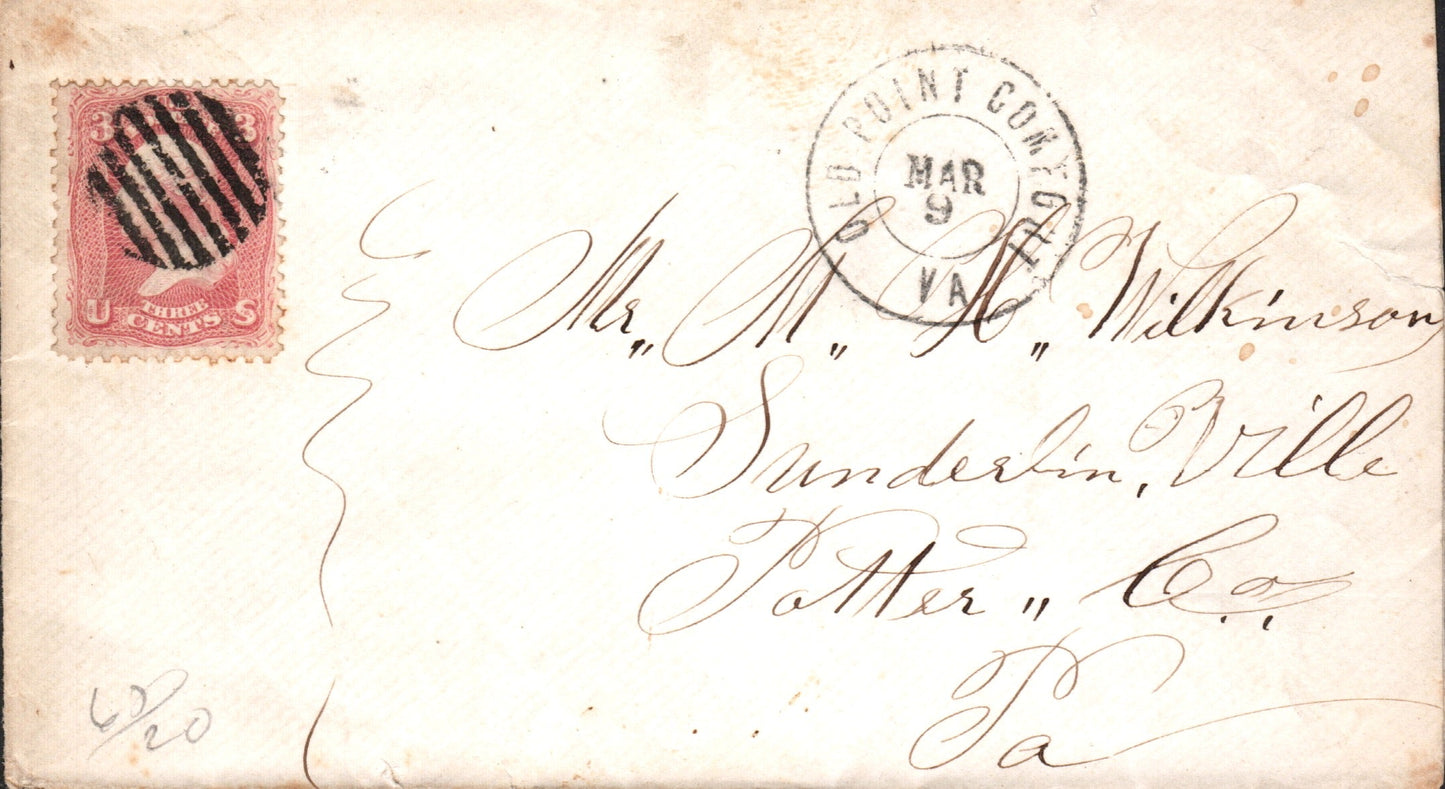 3 3
U THREE S
CENTS
OLD POINT COMFORT
MAR
9
VA
Mr„ M„ H„ Wilkinson
Sunderlin, Ville
Potter „ Co.,
Pa